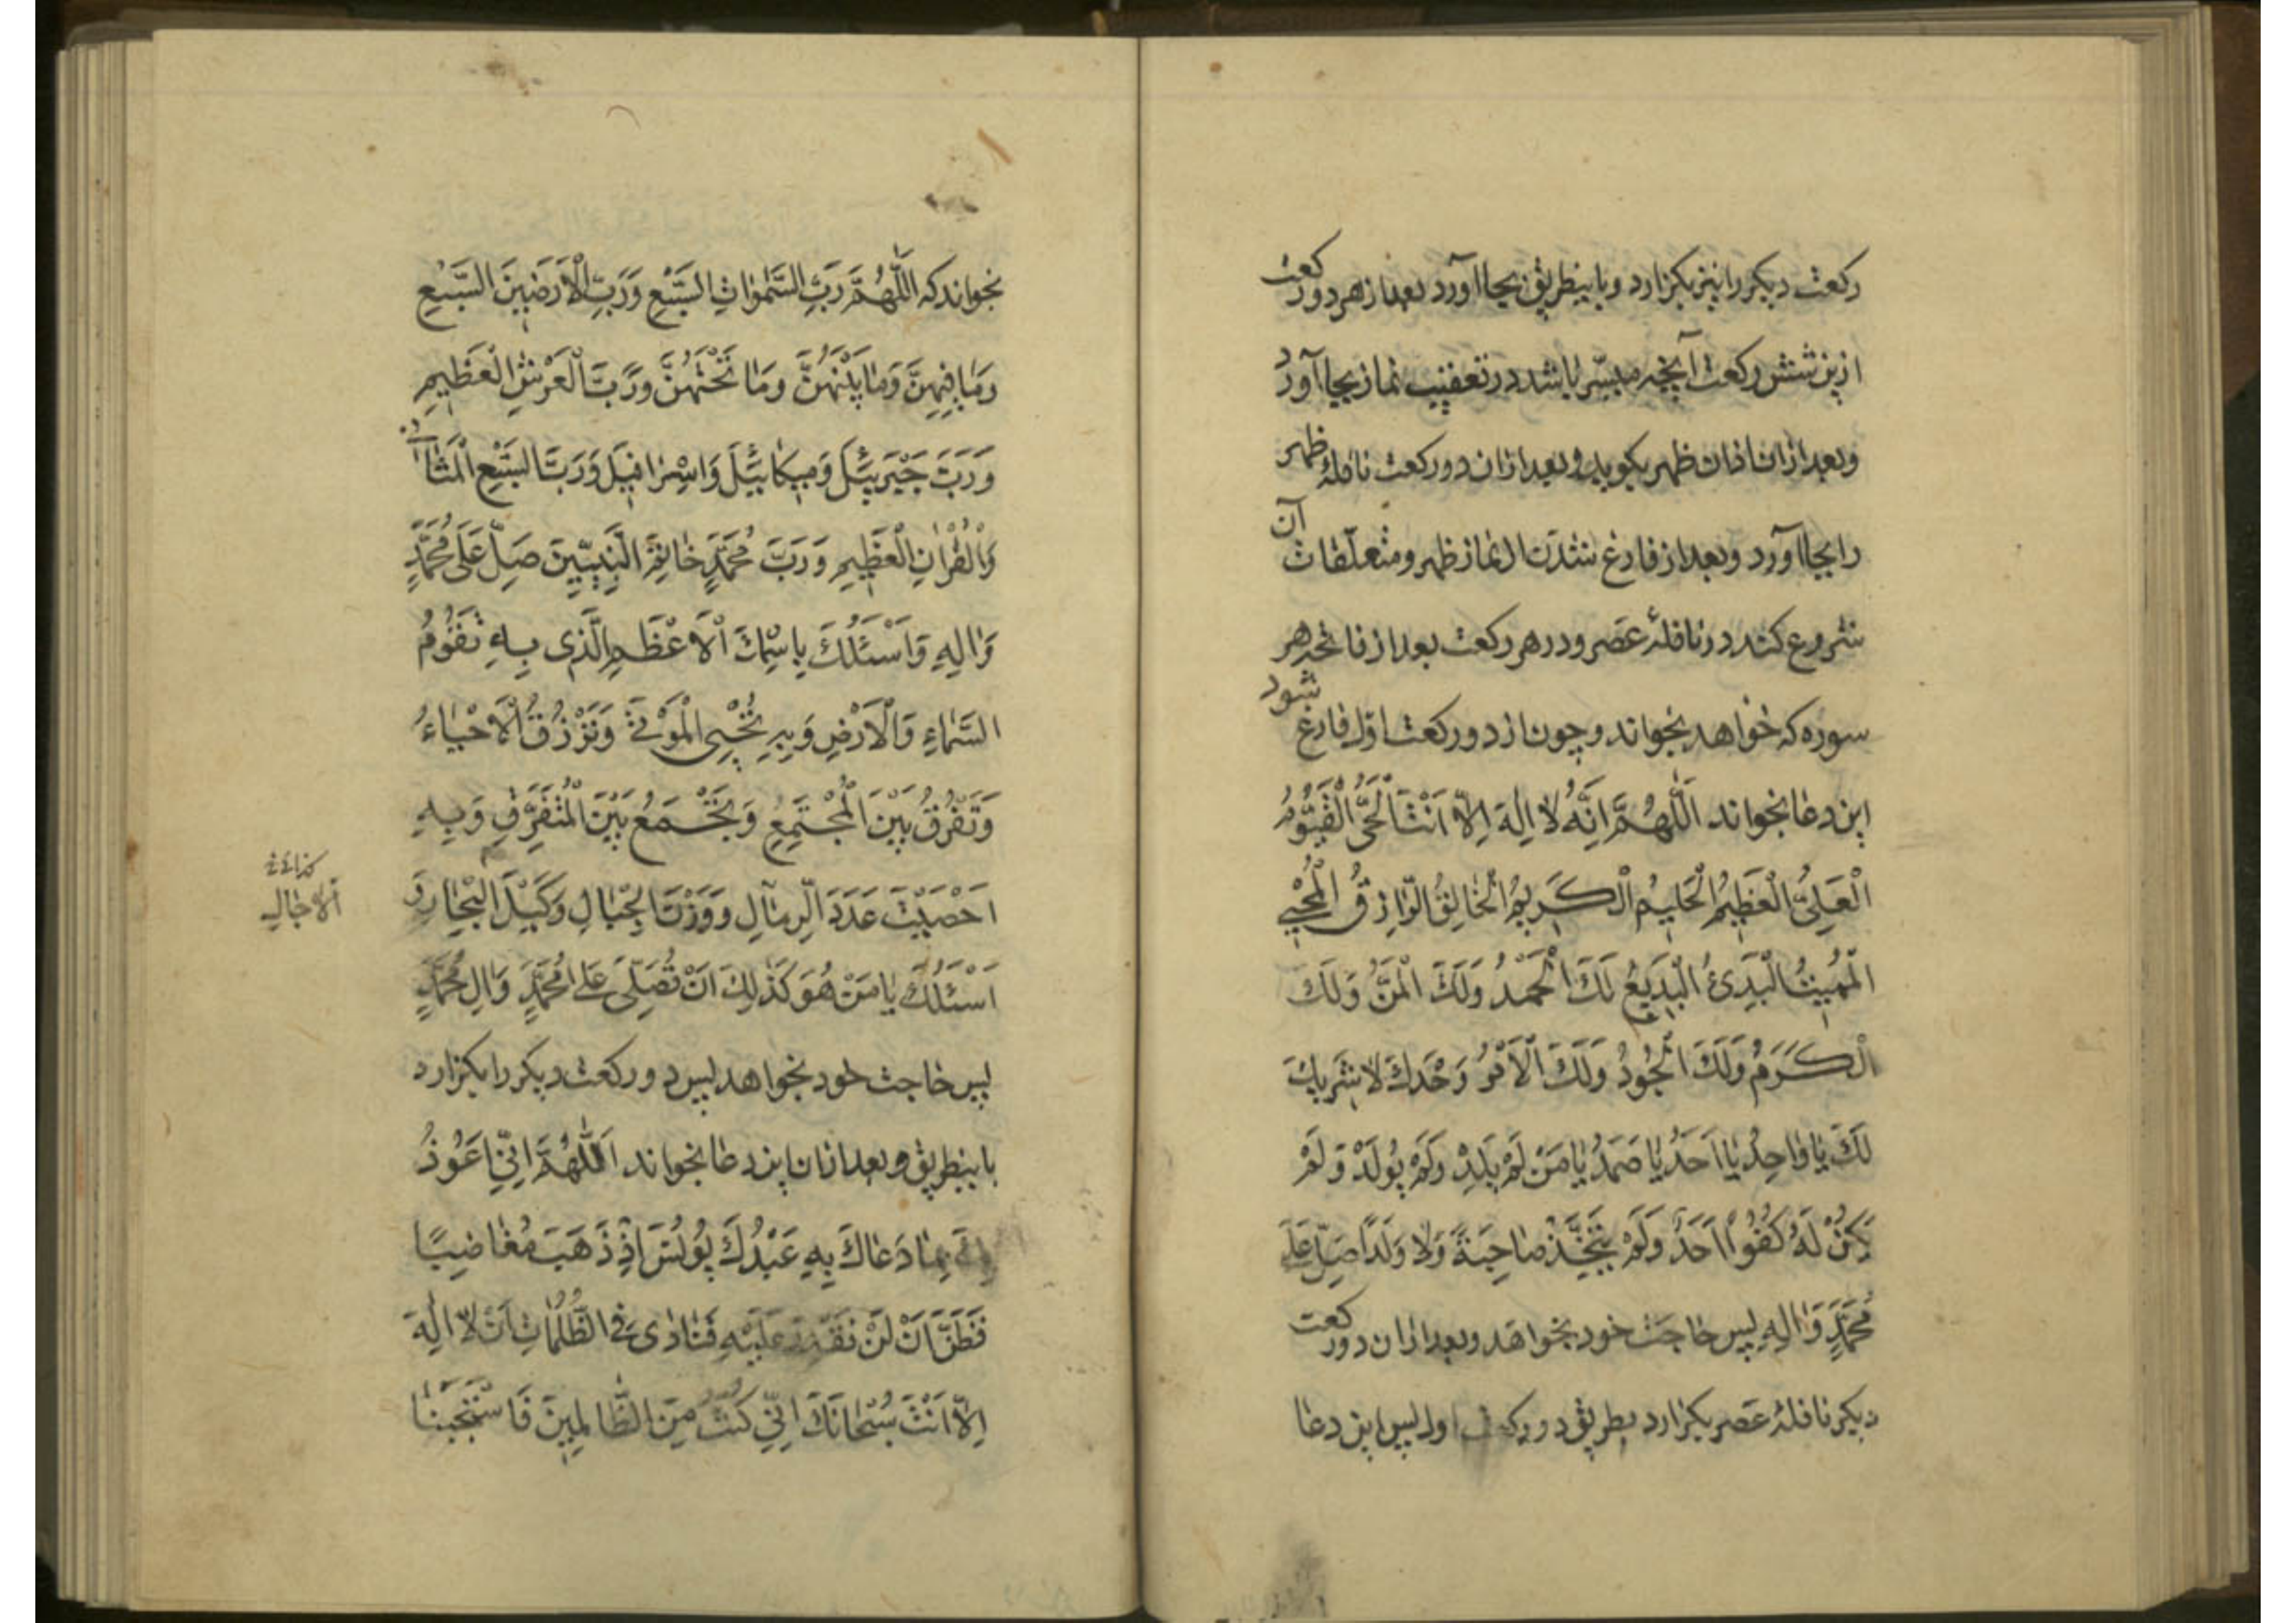 ركعت ديكر را نيز بكزارد و باينطريق بجا آورد بعد از هر دو ركعت
ازين شش ركعت آنچه ميسّر باشد در تعقيب نماز بجا آورد
وبعد ازان اذان ظهر بكويد وبعد ازان دو ركعت نافلۀ ظهر
را بجا آورد وبعد از فارغ شدن از نماز ظهر ومتعلّقات آن
شروع كند در نافلۀ عصر ودر هر ركعت بعد از فاتحه هر
سوره كه خواهد بخواند وچون از دو ركعت اوّل فارغ شود
اين دعا بخواند اَللّٰهُمَّ اِنَّهُ لٰا اِلٰهَ اِلّٰا اَنْتَ الْحَىُّ الْقَيُّومُ
الْعَلِىُّ الْعَظِيمُ الْحَلِيمُ الْكَرِيمُ الْخٰالِقُ الرّٰازِقُ الْمُحْيِي
الْمُمِيتُ الْبَدِئُ الْبَدِيعُ لَكَ الْحَمْدُ وَلَكَ الْمَنُّ وَلَكَ
الْكَرَمُ وَلَكَ الْجُودُ وَلَكَ الْاَمْرُ وَحْدَكَ لٰا شَرِيكَ
لَكَ يٰا وٰاحِدُ يٰا اَحَدُ يٰا صَمَدُ يٰا مَنْ لَمْ يَلِدْ وَلَمْ يُولَدْ وَلَمْ
يَكُنْ لَهُ كُفُوًا اَحَدٌ وَلَمْ يَتَّخِذْ صٰاحِبَةً وَلٰا وَلَدًا صَلِّ عَلٰى
مُحَمَّدٍ وَاٰلِهِ پس حاجت خود بخواهد وبعد ازان دو ركعت
ديكر نافلۀ عصر بكزارد بطريق دو ركعت اول پس اين دعا
بخواند كه اَللّٰهُمَّ رَبَّ السَّمٰوٰاتِ السَّبْعِ وَرَبَّ الْاَرَضِينَ السَّبْعِ
وَمٰا فِيهِنَّ وَمٰا بَيْنَهُنَّ وَمٰا تَحْتَهُنَّ وَرَبَّ الْعَرْشِ الْعَظِيمِ
وَرَبَّ جَبْرَئِيلَ وَمِيكٰائِيلَ وَاِسْرٰافِيلَ وَرَبَّ السَّبْعِ الْمَثٰانِي
وَالْقُرْاٰنِ الْعَظِيمِ وَرَبَّ مُحَمَّدٍ خٰاتِمِ النَّبِيِّينَ صَلِّ عَلٰى مُحَمَّدٍ
وَاٰلِهِ وَاَسْئَلُكَ بِاسْمِكَ الْاَعْظَمِ الَّذِى بِهِ تَقُومُ
السَّمٰاءِ وَالْاَرْضِ وَبِهِ تُحْيِى الْمَوْتٰى وَتَرْزُقُ الْاَحْيٰاءُ
وَتَفْرُقُ بَيْنَ الْمُجْتَمِعِ وَتَجْمَعُ بَيْنَ الْمُتَفَرِّقِ وَبِهِ
اَحْصَيْتَ عَدَدَ الرِّمٰالِ وَوَزْنَ الْجِبٰالِ وَكَيْلَ الْبِحٰارِ وَ
الاجال
اَسْئَلُكَ يٰا مَنْ هُوَ كَذٰلِكَ اَنْ تُصَلِّىَ عَلٰى مُحَمَّدٍ وَاٰلِ مُحَمَّدٍ
پس حاجت خود بخواهد پس دو ركعت ديكر را بكزارد
باينطريق وبعد ازان اين دعا بخواند اَللّٰهُمَّ اِنِّي اَعُوذُ
بِمٰا دَعٰاكَ بِهِ عَبْدُكَ يُونُسَ اِذْ ذَهَبَ مُغٰاضِبًا
فَظَنَّ اَنْ لَنْ نَقْدِرَ عَلَيْهِ فَنٰادٰى فِى الظُّلُمٰاتِ اَنْ لٰا اِلٰهَ
اِلّٰا اَنْتَ سُبْحٰانَكَ اِنِّي كُنْتُ مِنَ الظّٰالِمِينَ فَاسْتَجَبْنٰا